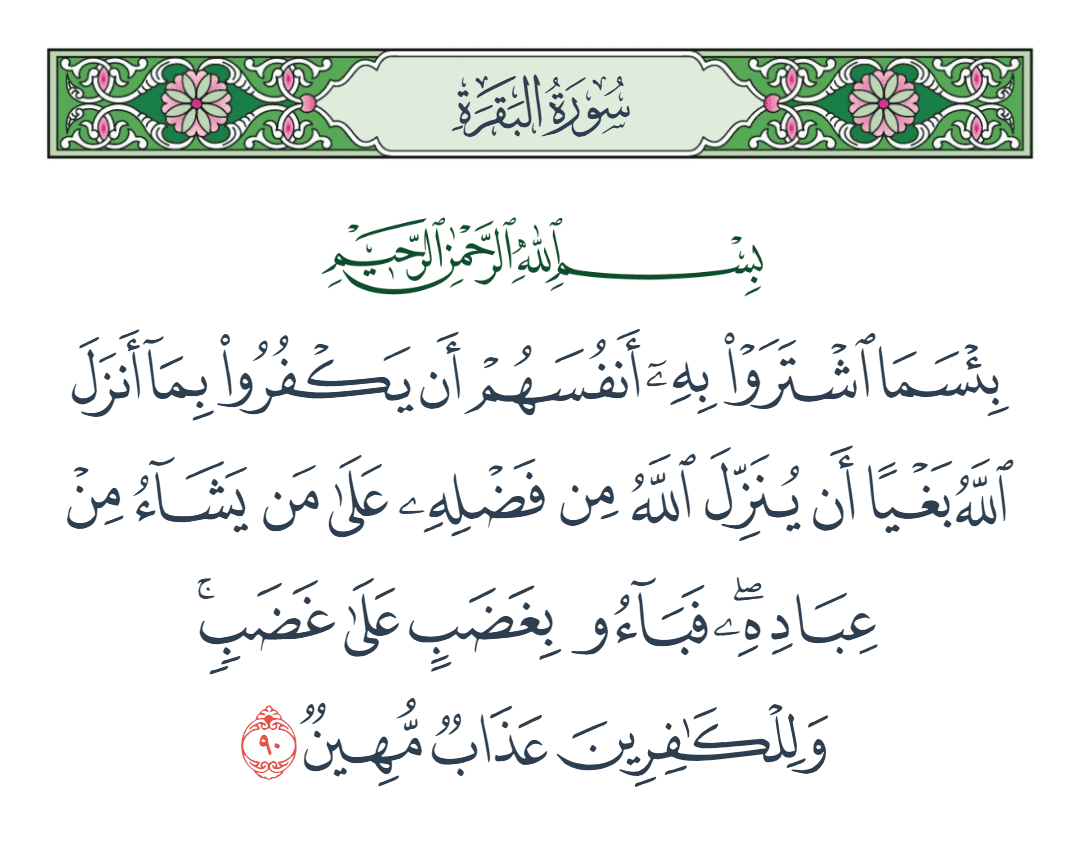 سُورَةُ البَقَرَةِ
بِسْمِ ٱللَّهِ ٱلرَّحْمَٰنِ ٱلرَّحِيمِ
بِئْسَمَا ٱشْتَرَوْا۟ بِهِۦٓ أَنفُسَهُمْ أَن يَكْفُرُوا۟ بِمَآ أَنزَلَ
ٱللَّهُ بَغْيًا أَن يُنَزِّلَ ٱللَّهُ مِن فَضْلِهِۦ عَلَىٰ مَن يَشَآءُ مِنْ
عِبَادِهِۦۖ فَبَآءُو بِغَضَبٍ عَلَىٰ غَضَبٍۚ
وَلِلْكَٰفِرِينَ عَذَابٌ مُّهِينٌ ٩٠